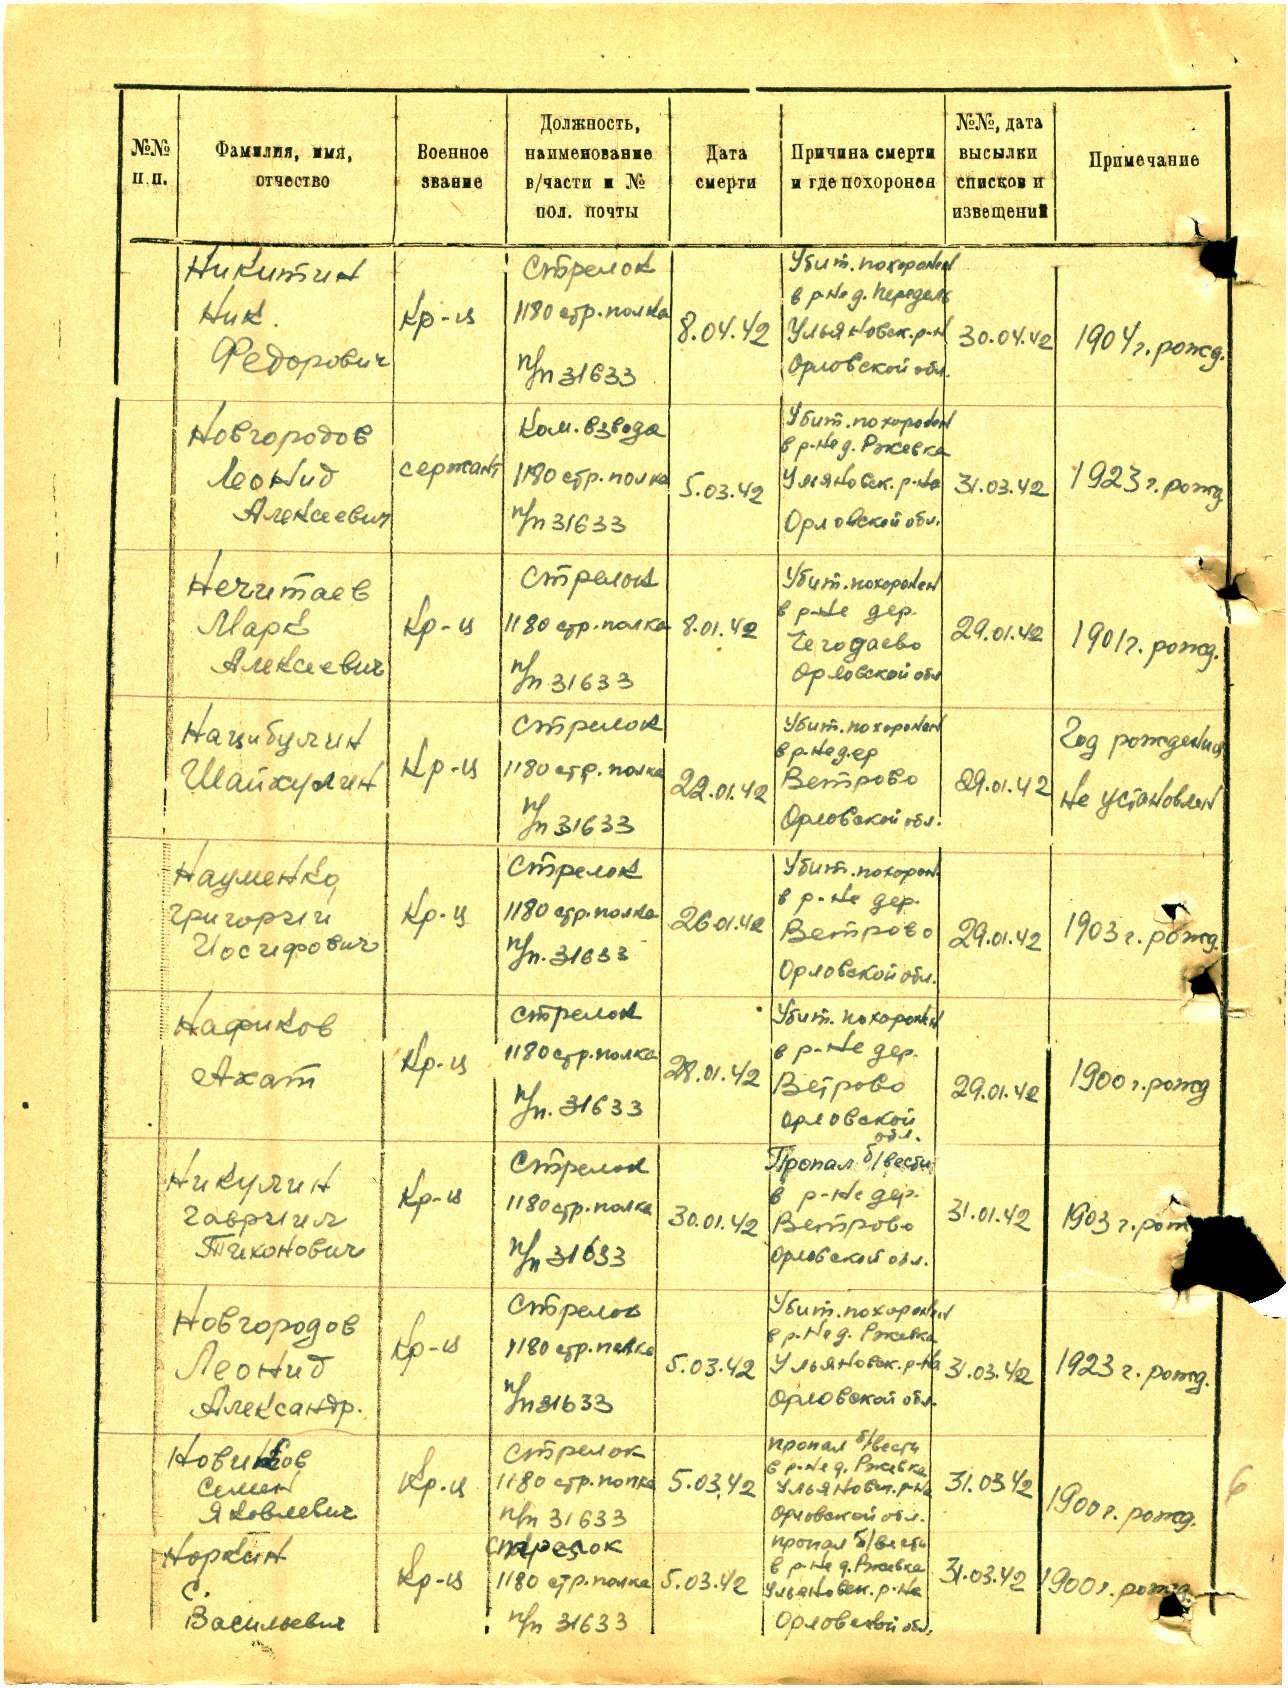 №№ п.п.
Фамилия, имя, отчество
Военное звание
Должность, наименование в/части и № пол. почты
Дата смерти
Причина смерти и где похоронен
№№, дата высылки списков и извещений
Примечание
Никитин
Ник.
Федорович
Кр-ц
Стрелок
1180 стр. полка
п/п 31633
8.04.42
Убит. похоронен
в р-не д. Передель
Ульяновск. р-н
Орловской обл.
30.04.42
1904 г. рожд.
Новгородов
Леонид
Алексеевич
сержант
Ком. взвода
1180 стр. полка
п/п 31633
5.03.42
Убит. похоронен
в р-не д. Ржевка
Ульяновск. р-на
Орловской обл.
31.03.42
1923 г. рожд
Нечитаев
Марк
Алексеевич
Кр-ц
Стрелок
1180 стр. полка
п/п 31633
8.01.42
Убит. похоронен
в р-не дер.
Чегодаево
Орловской обл
29.01.42
1901 г. рожд.
Нацибулин
Шайхулин
Кр-ц
Стрелок
1180 стр. полка
п/п 31633
22.01.42
Убит. похоронен
в р-не дер
Ветрово
Орловской обл.
29.01.42
Год рождения
не установлен
Науменко
Григорий
Иосифович
Кр-ц
Стрелок
1180 стр. полка
п/п. 31633
26.01.42
Убит. похорон.
в р-не дер.
Ветрово
Орловской обл.
29.01.42
1903 г. рожд.
Нафиков
Ахат
Кр-ц
Стрелок
1180 стр. полка
п/п. 31633
28.01.42
Убит. похоронен
в р-не дер.
Ветрово
Орловской
обл.
29.01.42
1900 г. рожд
Никулин
Гавриил
Тихонович
Кр-ц
Стрелок
1180 стр. полка
п/п 31633
30.01.42
Пропал б/вести
в р-не дер.
Ветрово
Орловской обл.
31.01.42
1903 г. рож
Новгородов
Леонид
Александр.
Кр-ц
Стрелок
1180 стр. полка
п/п 31633
5.03.42
Убит. похоронен
в р-не д. Ржевка
Ульяновск. р-на
Орловской обл.
31.03.42
1923 г. рожд.
Новиков
Семен
Яковлевич
Кр-ц
Стрелок
1180 стр. полка
п/п 31633
5.03.42
пропал б/вести
в р-не д. Ржевка
Ульяновск. р-на
Орловской обл.
31.03.42
1900 г. рожд.
6
Норкин
С.
Васильевич
Кр-ц
Стрелок
1180 стр. полка
п/п 31633
5.03.42
пропал б/вести
в р-не д. Ржевка
Ульяновск. р-на
Орловской обл.
31.03.42
1900 г. рожд